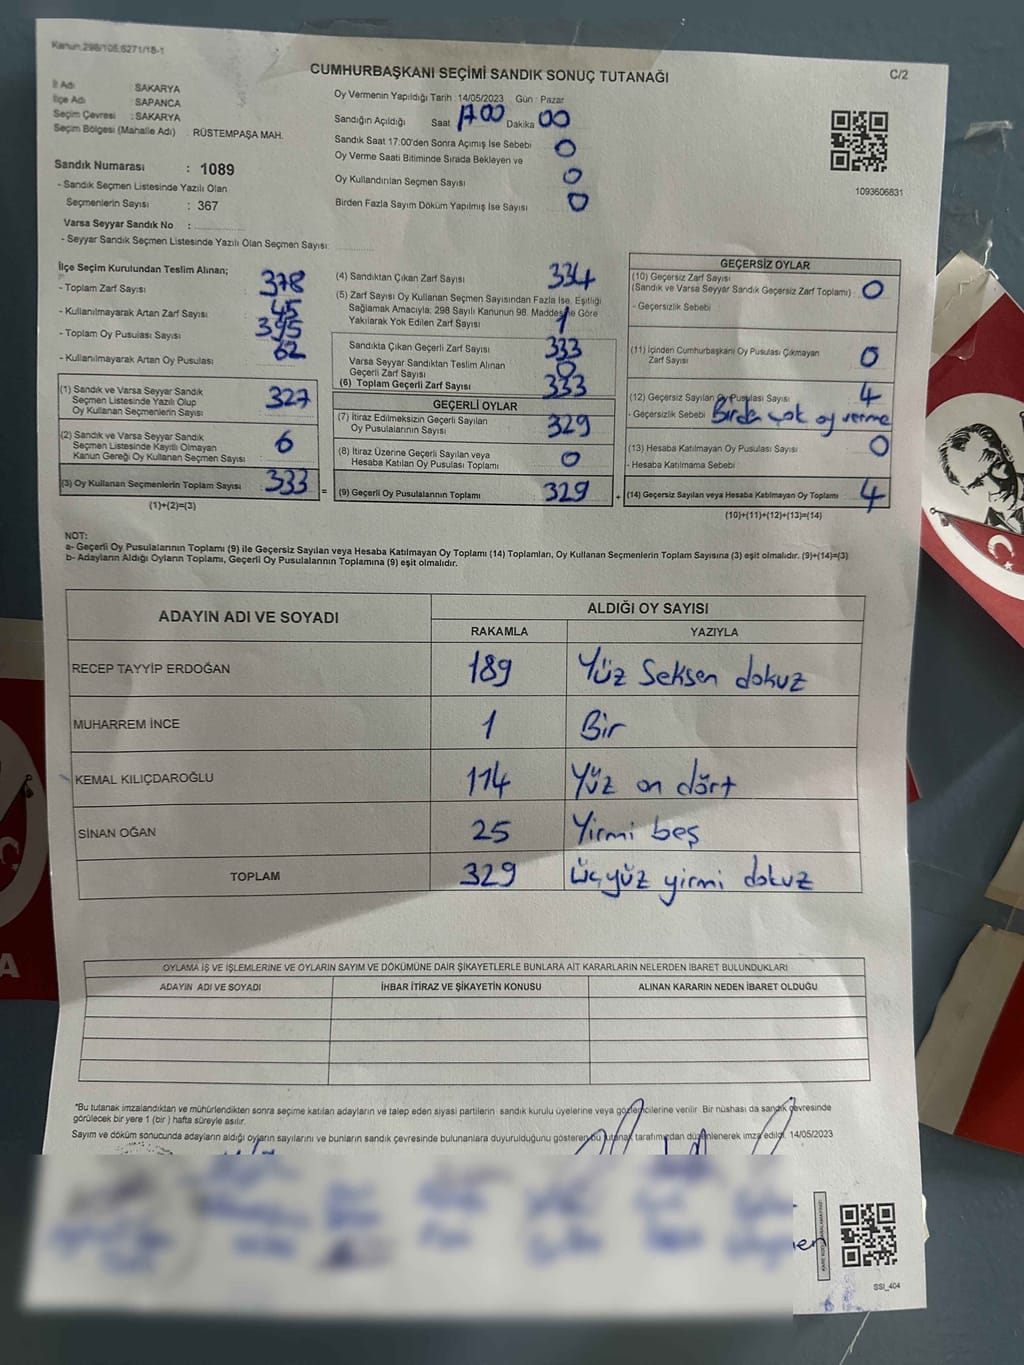 Kanun:298/105,6271/18-1
C/2
CUMHURBAŞKANI SEÇİMİ SANDIK SONUÇ TUTANAĞI
İl Adı : SAKARYA
İlçe Adı : SAPANCA
Seçim Çevresi : SAKARYA
Seçim Bölgesi (Mahalle Adı) : RÜSTEMPAŞA MAH.
Sandık Numarası : 1089
- Sandık Seçmen Listesinde Yazılı Olan
Seçmenlerin Sayısı : 367
Varsa Seyyar Sandık No :
- Seyyar Sandık Seçmen Listesinde Yazılı Olan Seçmen Sayısı:
Oy Vermenin Yapıldığı Tarih 14/05/2023 Gün Pazar
Sandığın Açıldığı Saat 17.00 Dakika 00
Sandık Saat 17:00'den Sonra Açımış İse Sebebi 0
Oy Verme Saati Bitiminde Sırada Bekleyen ve
Oy Kullandırılan Seçmen Sayısı 0
Birden Fazla Sayım Döküm Yapılmış İse Sayısı 0
1093606831
İlçe Seçim Kurulundan Teslim Alınan;
- Toplam Zarf Sayısı : 378
- Kullanılmayarak Artan Zarf Sayısı : 45
- Toplam Oy Pusulası Sayısı : 395
- Kullanılmayarak Artan Oy Pusulası : 62
(1) Sandık ve Varsa Seyyar Sandık
Seçmen Listesinde Yazılı Olup
Oy Kullanan Seçmenlerin Sayısı : 327
(2) Sandık ve Varsa Seyyar Sandık
Seçmen Listesinde Kayıtlı Olmayan
Kanun Gereği Oy Kullanan Seçmen Sayısı : 6
(3) Oy Kullanan Seçmenlerin Toplam Sayısı : 333 =
(1)+(2)=(3)
(4) Sandıktan Çıkan Zarf Sayısı 334
(5) Zarf Sayısı Oy Kullanan Seçmen Sayısından Fazla İse, Eşitliği
Sağlamak Amacıyla; 298 Sayılı Kanunun 98. Maddesine Göre
Yakılarak Yok Edilen Zarf Sayısı 1
Sandıkta Çıkan Geçerli Zarf Sayısı 333
Varsa Seyyar Sandıktan Teslim Alınan
Geçerli Zarf Sayısı : 0
(6) Toplam Geçerli Zarf Sayısı : 333
GEÇERLİ OYLAR
(7) İtiraz Edilmeksizin Geçerli Sayılan
Oy Pusulalarının Sayısı : 329
(8) İtiraz Üzerine Geçerli Sayılan veya
Hesaba Katılan Oy Pusulası Toplamı 0
(9) Geçerli Oy Pusulalarının Toplamı : 329 +
GEÇERSİZ OYLAR
(10) Geçersiz Zarf Sayısı
(Sandık ve Varsa Seyyar Sandık Geçersiz Zarf Toplamı) : 0
- Geçersizlik Sebebi :
(11) İçinden Cumhurbaşkanı Oy Pusulası Çıkmayan
Zarf Sayısı : 0
(12) Geçersiz Sayılan Oy Pusulası Sayısı : 4
- Geçersizlik Sebebi Birden çok oy verme
(13) Hesaba Katılmayan Oy Pusulası Sayısı : 0
- Hesaba Katılmama Sebebi :
(14) Geçersiz Sayılan veya Hesaba Katılmayan Oy Toplamı : 4
(10)+(11)+(12)+(13)=(14)
NOT:
a- Geçerli Oy Pusulalarının Toplamı (9) ile Geçersiz Sayılan veya Hesaba Katılmayan Oy Toplamı (14) Toplamları, Oy Kullanan Seçmenlerin Toplam Sayısına (3) eşit olmalıdır. (9)+(14)=(3)
b- Adayların Aldığı Oyların Toplamı, Geçerli Oy Pusulalarının Toplamına (9) eşit olmalıdır.
ADAYIN ADI VE SOYADI ALDIĞI OY SAYISI
RAKAMLA YAZIYLA
RECEP TAYYİP ERDOĞAN 189 Yüz Seksen dokuz
MUHARREM İNCE 1 Bir
KEMAL KILIÇDAROĞLU 114 Yüz on dört
SİNAN OĞAN 25 Yirmi beş
TOPLAM 329 Üçyüz yirmi dokuz
OYLAMA İŞ VE İŞLEMLERİNE VE OYLARIN SAYIM VE DÖKÜMÜNE DAİR ŞİKAYETLERLE BUNLARA AİT KARARLARIN NELERDEN İBARET BULUNDUKLARI
ADAYIN ADI VE SOYADI İHBAR İTİRAZ VE ŞİKAYETİN KONUSU ALINAN KARARIN NEDEN İBARET OLDUĞU
*Bu tutanak imzalandıktan ve mühürlendikten sonra seçime katılan adayların ve talep eden siyasi partilerin sandık kurulu üyelerine veya gözlemcilerine verilir. Bir nüshası da sandık çevresinde
görülecek bir yere 1 (bir) hafta süreyle asılır.
Sayım ve döküm sonucunda adayların aldığı oyların sayılarını ve bunların sandık çevresinde bulunanlara duyurulduğunu gösteren bu tutanak tarafımızdan düzenlenerek imza edildi. 14/05/2023
SSI_404
A